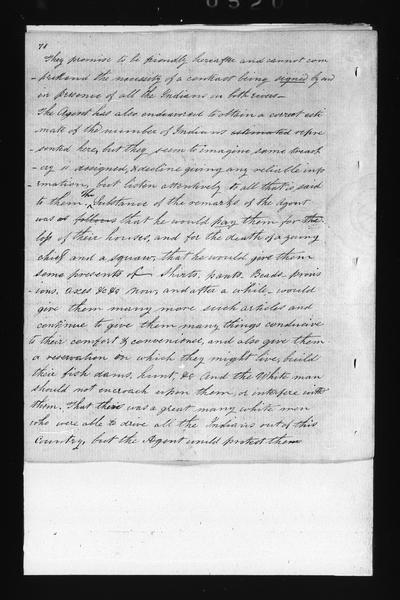 71
They promise to be friendly hereafter and cannot com
-prehend the necessity of a contract being signed by and
in presence of all the Indians on both rivers—
The Agent has also endeavored to obtain a correct esti
mate of the number of Indians estimated repre
sented here, but they seem to imagine some treach
-ery is designed, & decline giving any reliable info
rmation, but listen attentively to all that is said
to them. The Substance of the remarks of the Agent
was as follows that he would pay them for the
loss of their houses, and for the death of a young
chief and a squaw, that he would give them
some presents of Shirts, pants, Beads, provis
-ions, axes &c &c now, and after a while would
give them many more such articles and
continue to give them many things conducive
to their comfort & convenience, and also give them
a reservation on which they might live, build
their fish dams, hunt, &c And the White man
should not encroach upon them, or interfere with
them. That there was a great many white men
who were able to drive all the Indians out of this
Country, but the Agent would protect them